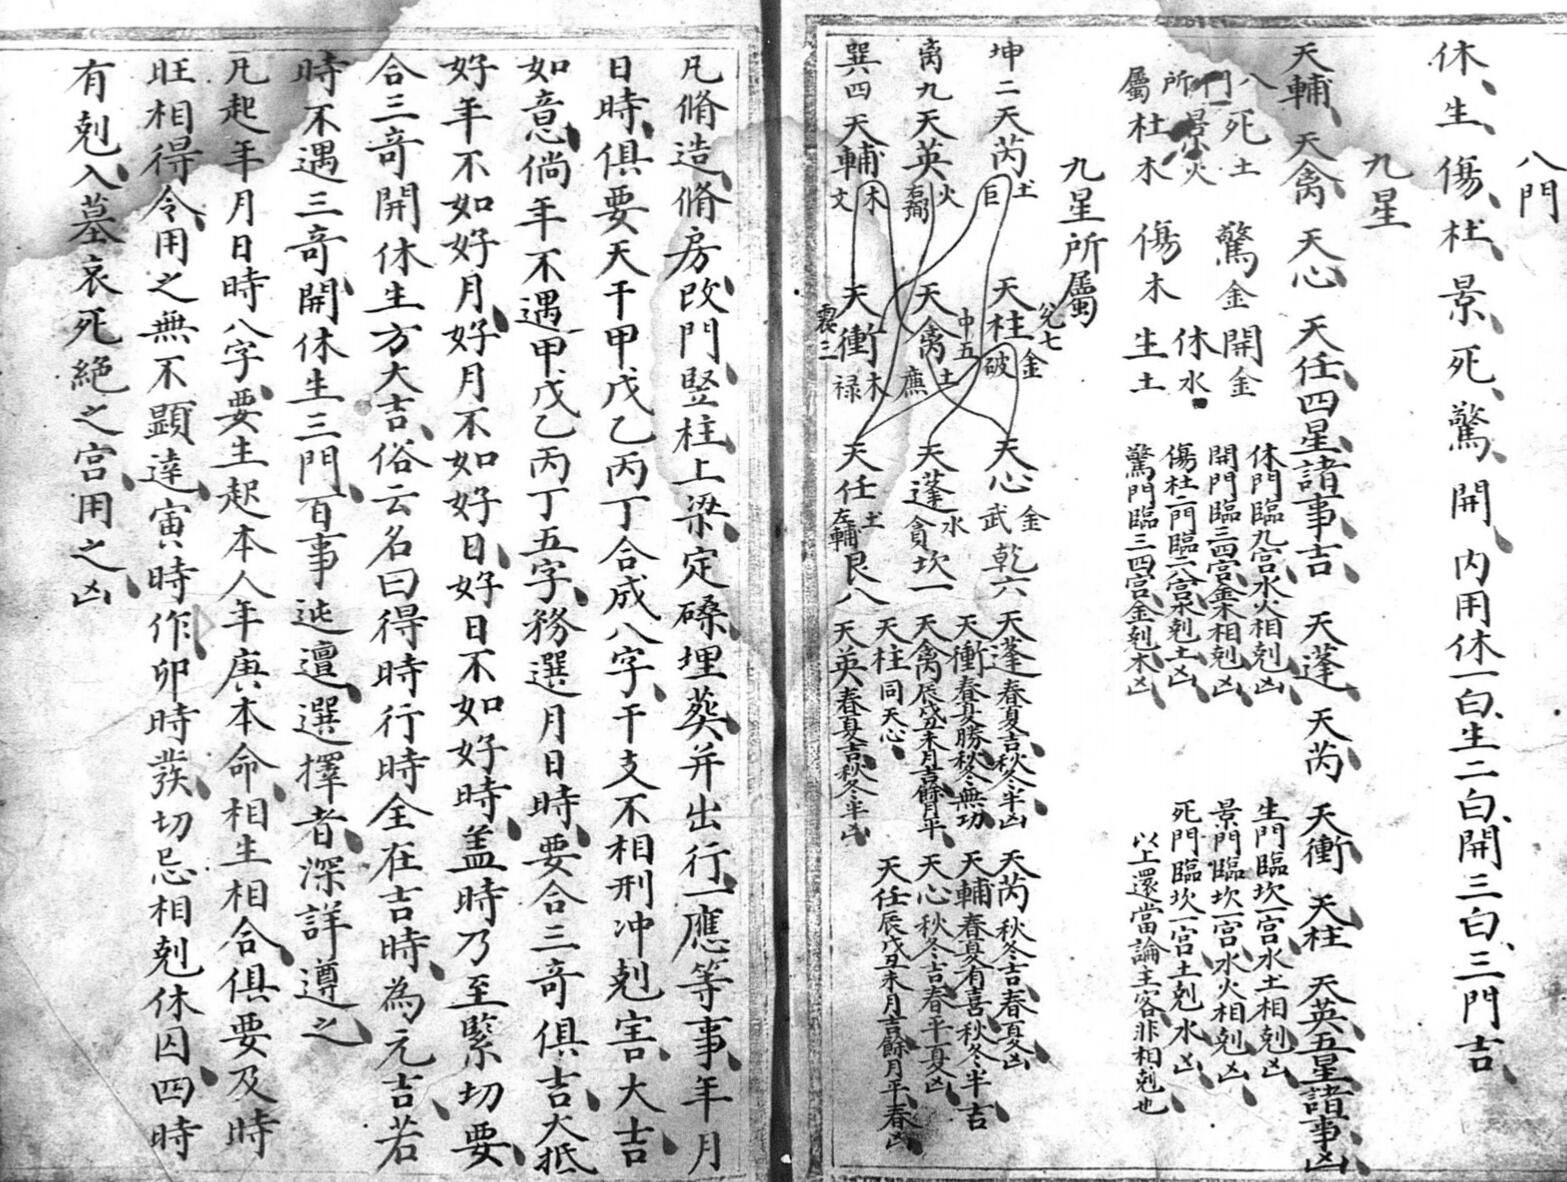 八門
休生傷杜景死驚開內用休一白生二白開三白三門吉
九星
天輔天禽天心天任四星諸事吉天蓬天芮天衝天柱天英五星諸事凶
八門所屬
死土
景火
杜木
驚金
傷木
開金
休水
生土
休門臨九宮水火相剋凶
開門臨三四宮金木相剋凶
傷杜二門臨二八宮木剋土凶
驚門臨三四宮金剋木凶
生門臨坎一宮水土相剋凶
景門臨坎一宮水火相剋凶
死門臨坎一宮土剋水凶
以上還當論主客非相剋也
九星所屬
坤二天芮土巨
兌七天柱金破
天心金武乾六
離九天英火右弼
中五天禽土廉
天蓬水貪坎一
巽四天輔木文
震三天衝木祿
天任土左輔艮八
天蓬春夏吉秋冬半凶
天芮秋冬吉春夏凶
天衝春夏勝秋冬無功
天輔春夏有喜秋冬半吉
天禽辰戌丑未月吉餘月平
天心秋冬吉春平夏凶
天柱同天心
天任辰戌丑未月吉餘月平春凶
天英春夏吉秋冬半凶
凡脩造脩房改門竪柱上梁定磉埋葬并出行一應等事年月
日時俱要天干甲戊乙丙丁合成八字干支不相刑冲剋害大吉
如意倘年不遇甲戊乙丙丁五字務選月日時要合三奇俱吉大抵
好年不如好月好月不如好日好日不如好時盖時乃至緊切要
合三奇開休生方大吉俗云名曰得時行時全在吉時為元吉若
時不遇三奇開休生三門百事迍邅選擇者深詳遵之
凡起年月日時八字要生起本人年庚本命相生相合俱要及時
旺相得令用之無不顯達寅時作卯時發切忌相剋休囚四時
有剋入墓哀死絕之宮用之凶